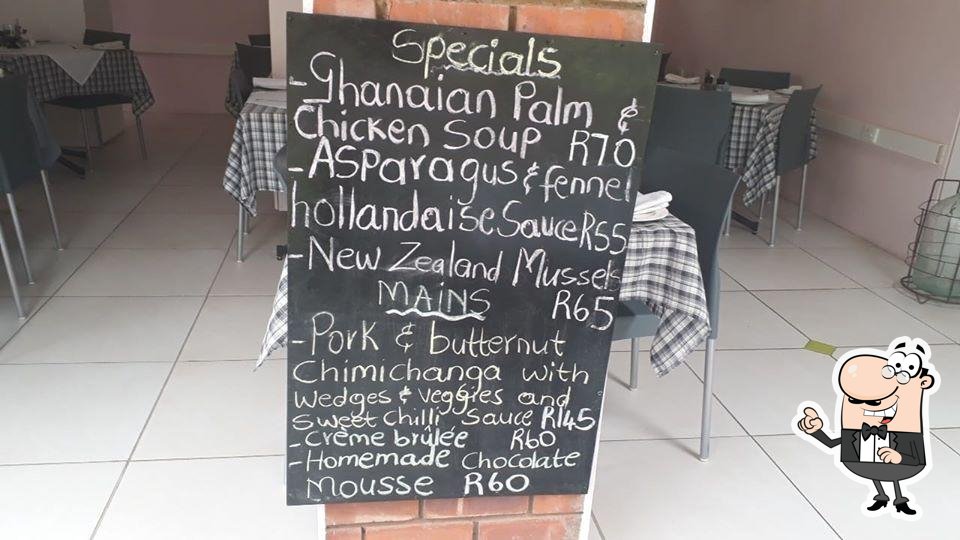 Specials
- Ghanaian Palm &
Chicken Soup R70
- Asparagus & fennel
hollandaise Sauce R55
- New Zealand Mussels
R65
MAINS
- Pork & butternut
Chimichanga with
Wedges & veggies and
Sweet Chilli Sauce R145
- Crème brûlée R60
- Homemade Chocolate
Mousse R60